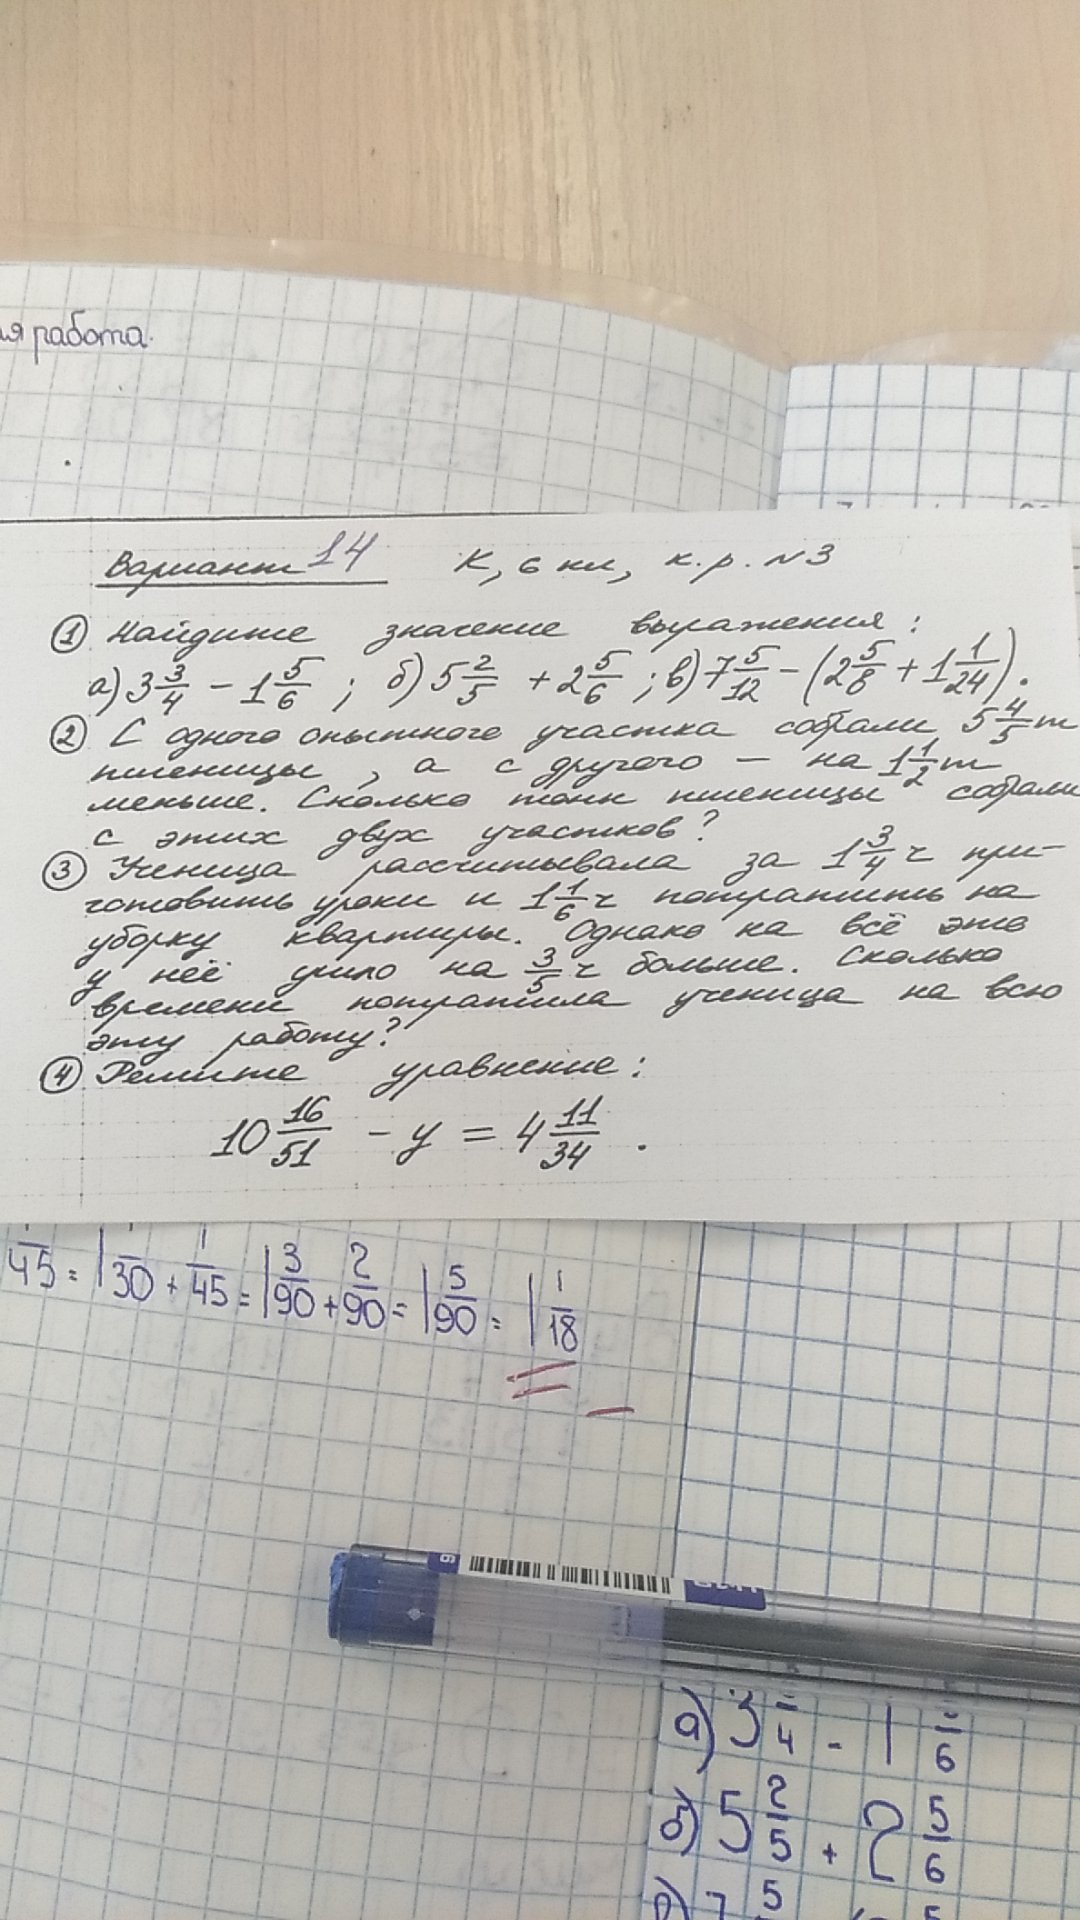 ая работа.
Вариант 14 К, 6 кл, к.р. №3
① Найдите значение выражения:
а) 3 3/4 - 1 5/6 ; б) 5 2/5 + 2 5/6 ; в) 7 5/12 - (2 5/8 + 1 1/24).
② С одного опытного участка собрали 5 4/5 т
пшеницы, а с другого — на 1 1/2 т
меньше. Сколько тонн пшеницы собрали
с этих двух участков?
③ Ученица рассчитывала за 1 3/4 ч при-
готовить уроки и 1 1/6 ч потратить на
уборку квартиры. Однако на всё это
у неё ушло на 3/5 ч больше. Сколько
времени потратила ученица на всю
эту работу?
④ Решите уравнение:
10 16/51 - y = 4 11/34 .
45 = 1 1/30 + 1/45 = 1 3/90 + 2/90 = 1 5/90 = 1 1/18
а) 3 /4 - 1 /6
б) 5 2/5 + 2 5/6